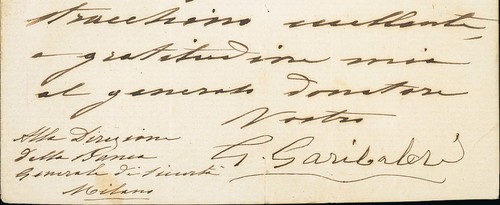 stracchino eccellente,
e gratitudine mia
al generoso donatore
Vostro
G. Garibaldi
Alla Direzione
della Banca
Generale di Sicurtà
Milano